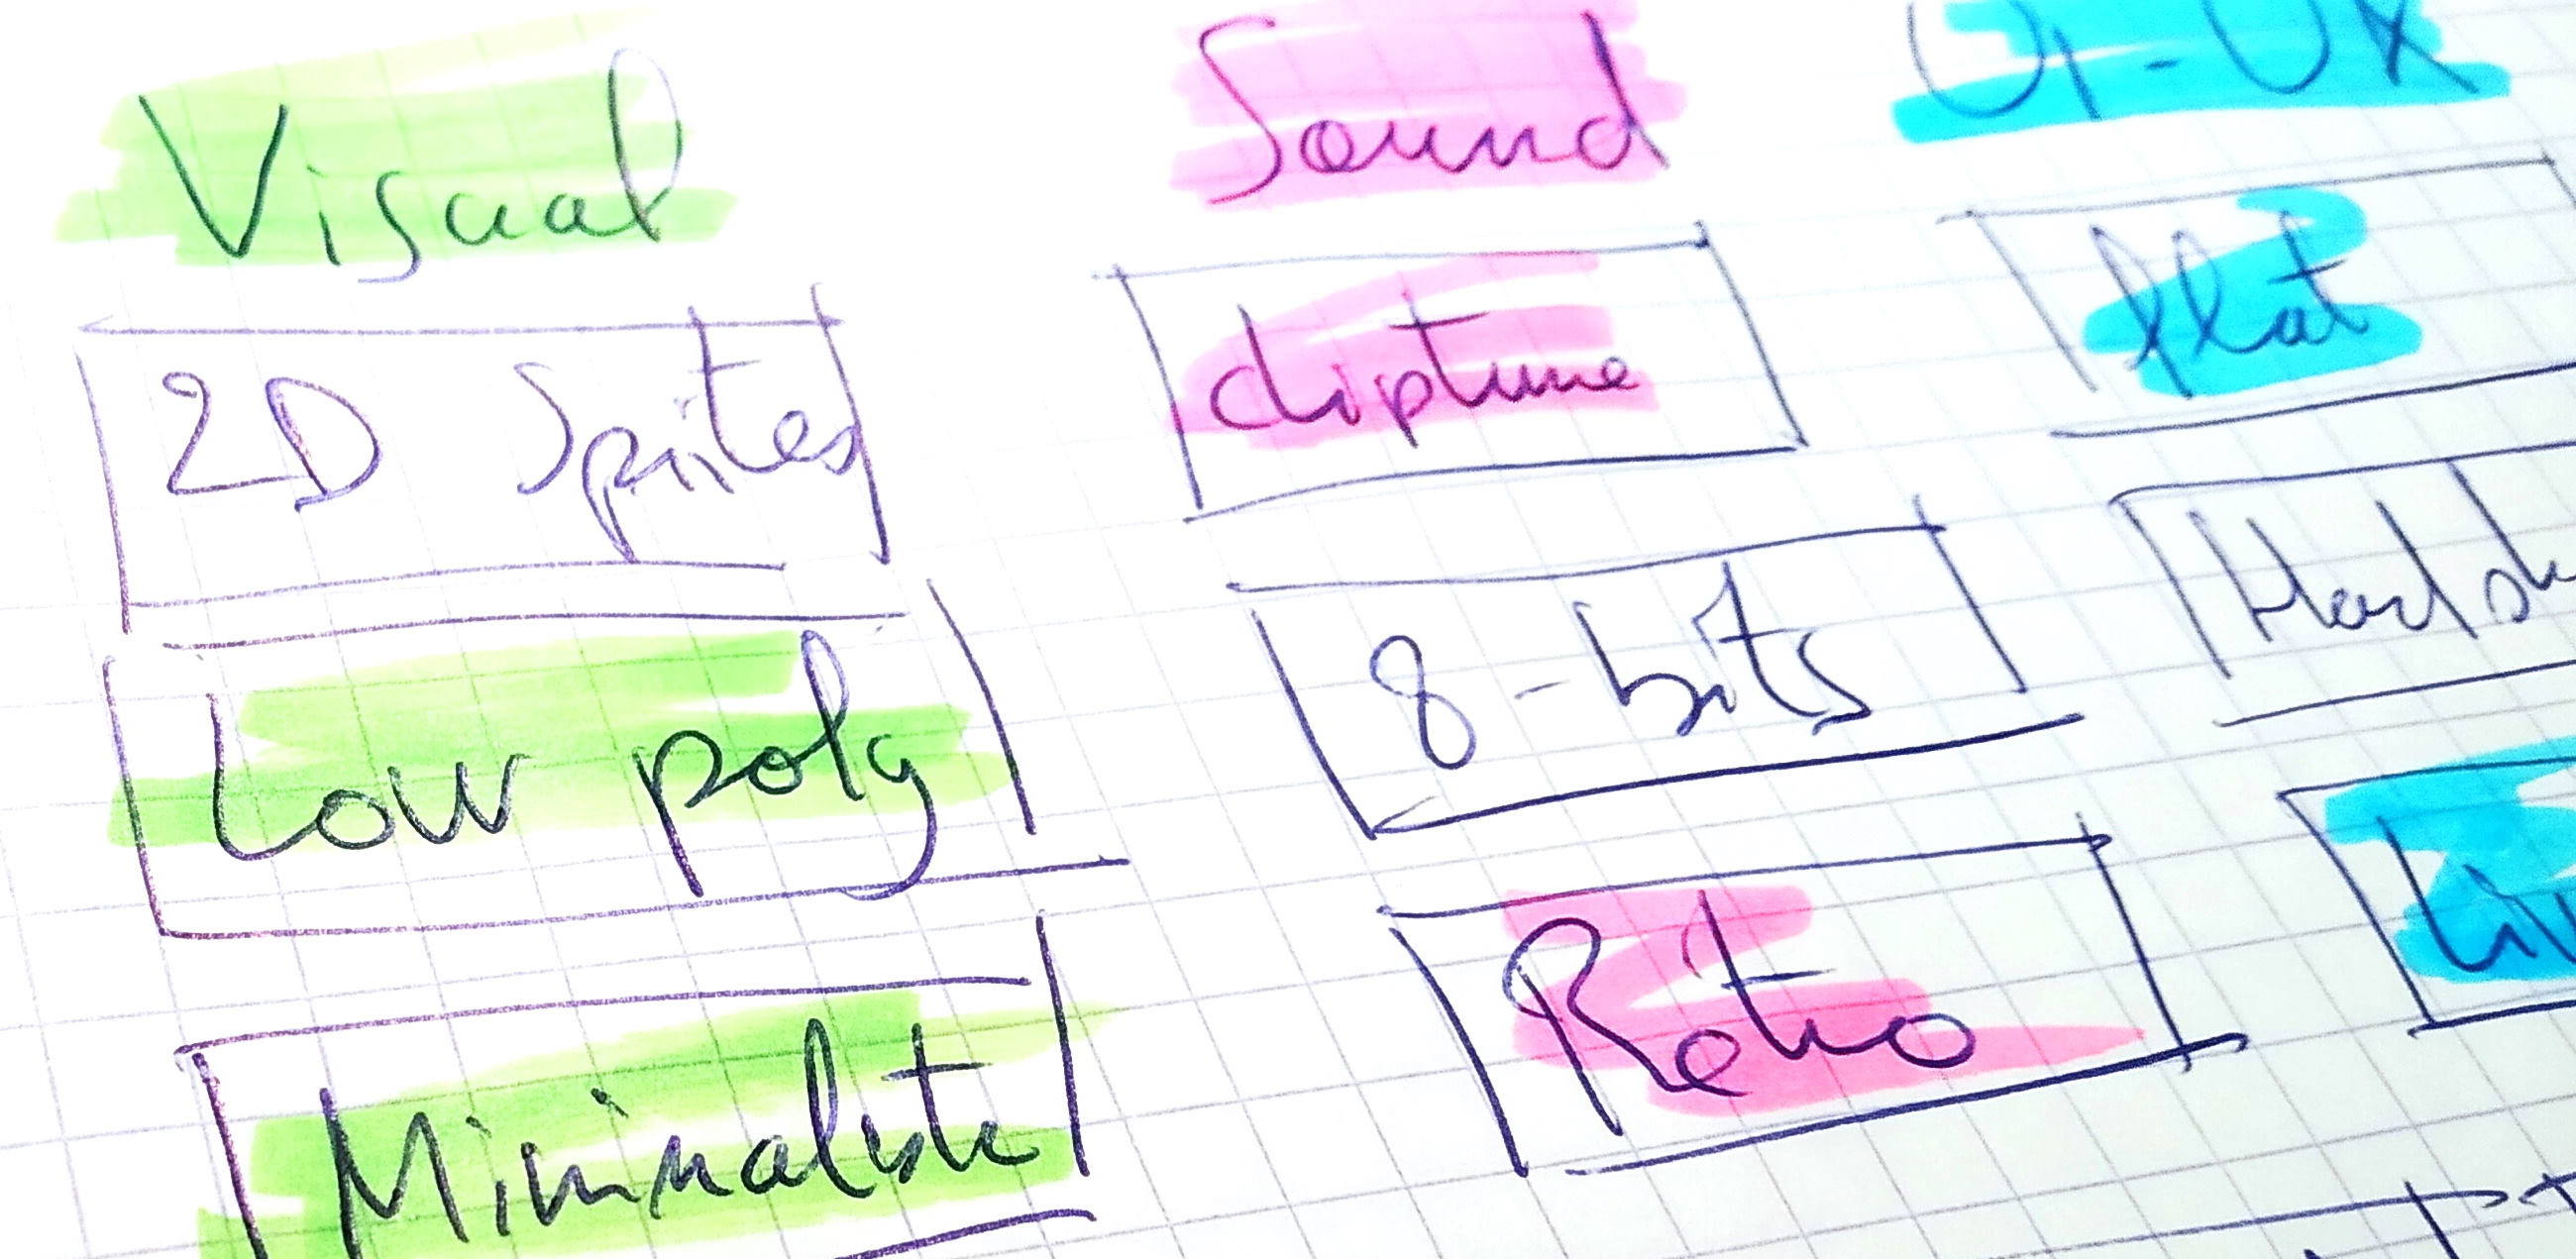 Visual
2D Sprites
Low poly
Minimaliste
Sound
chiptune
8-bits
Retro
UI-UX
flat